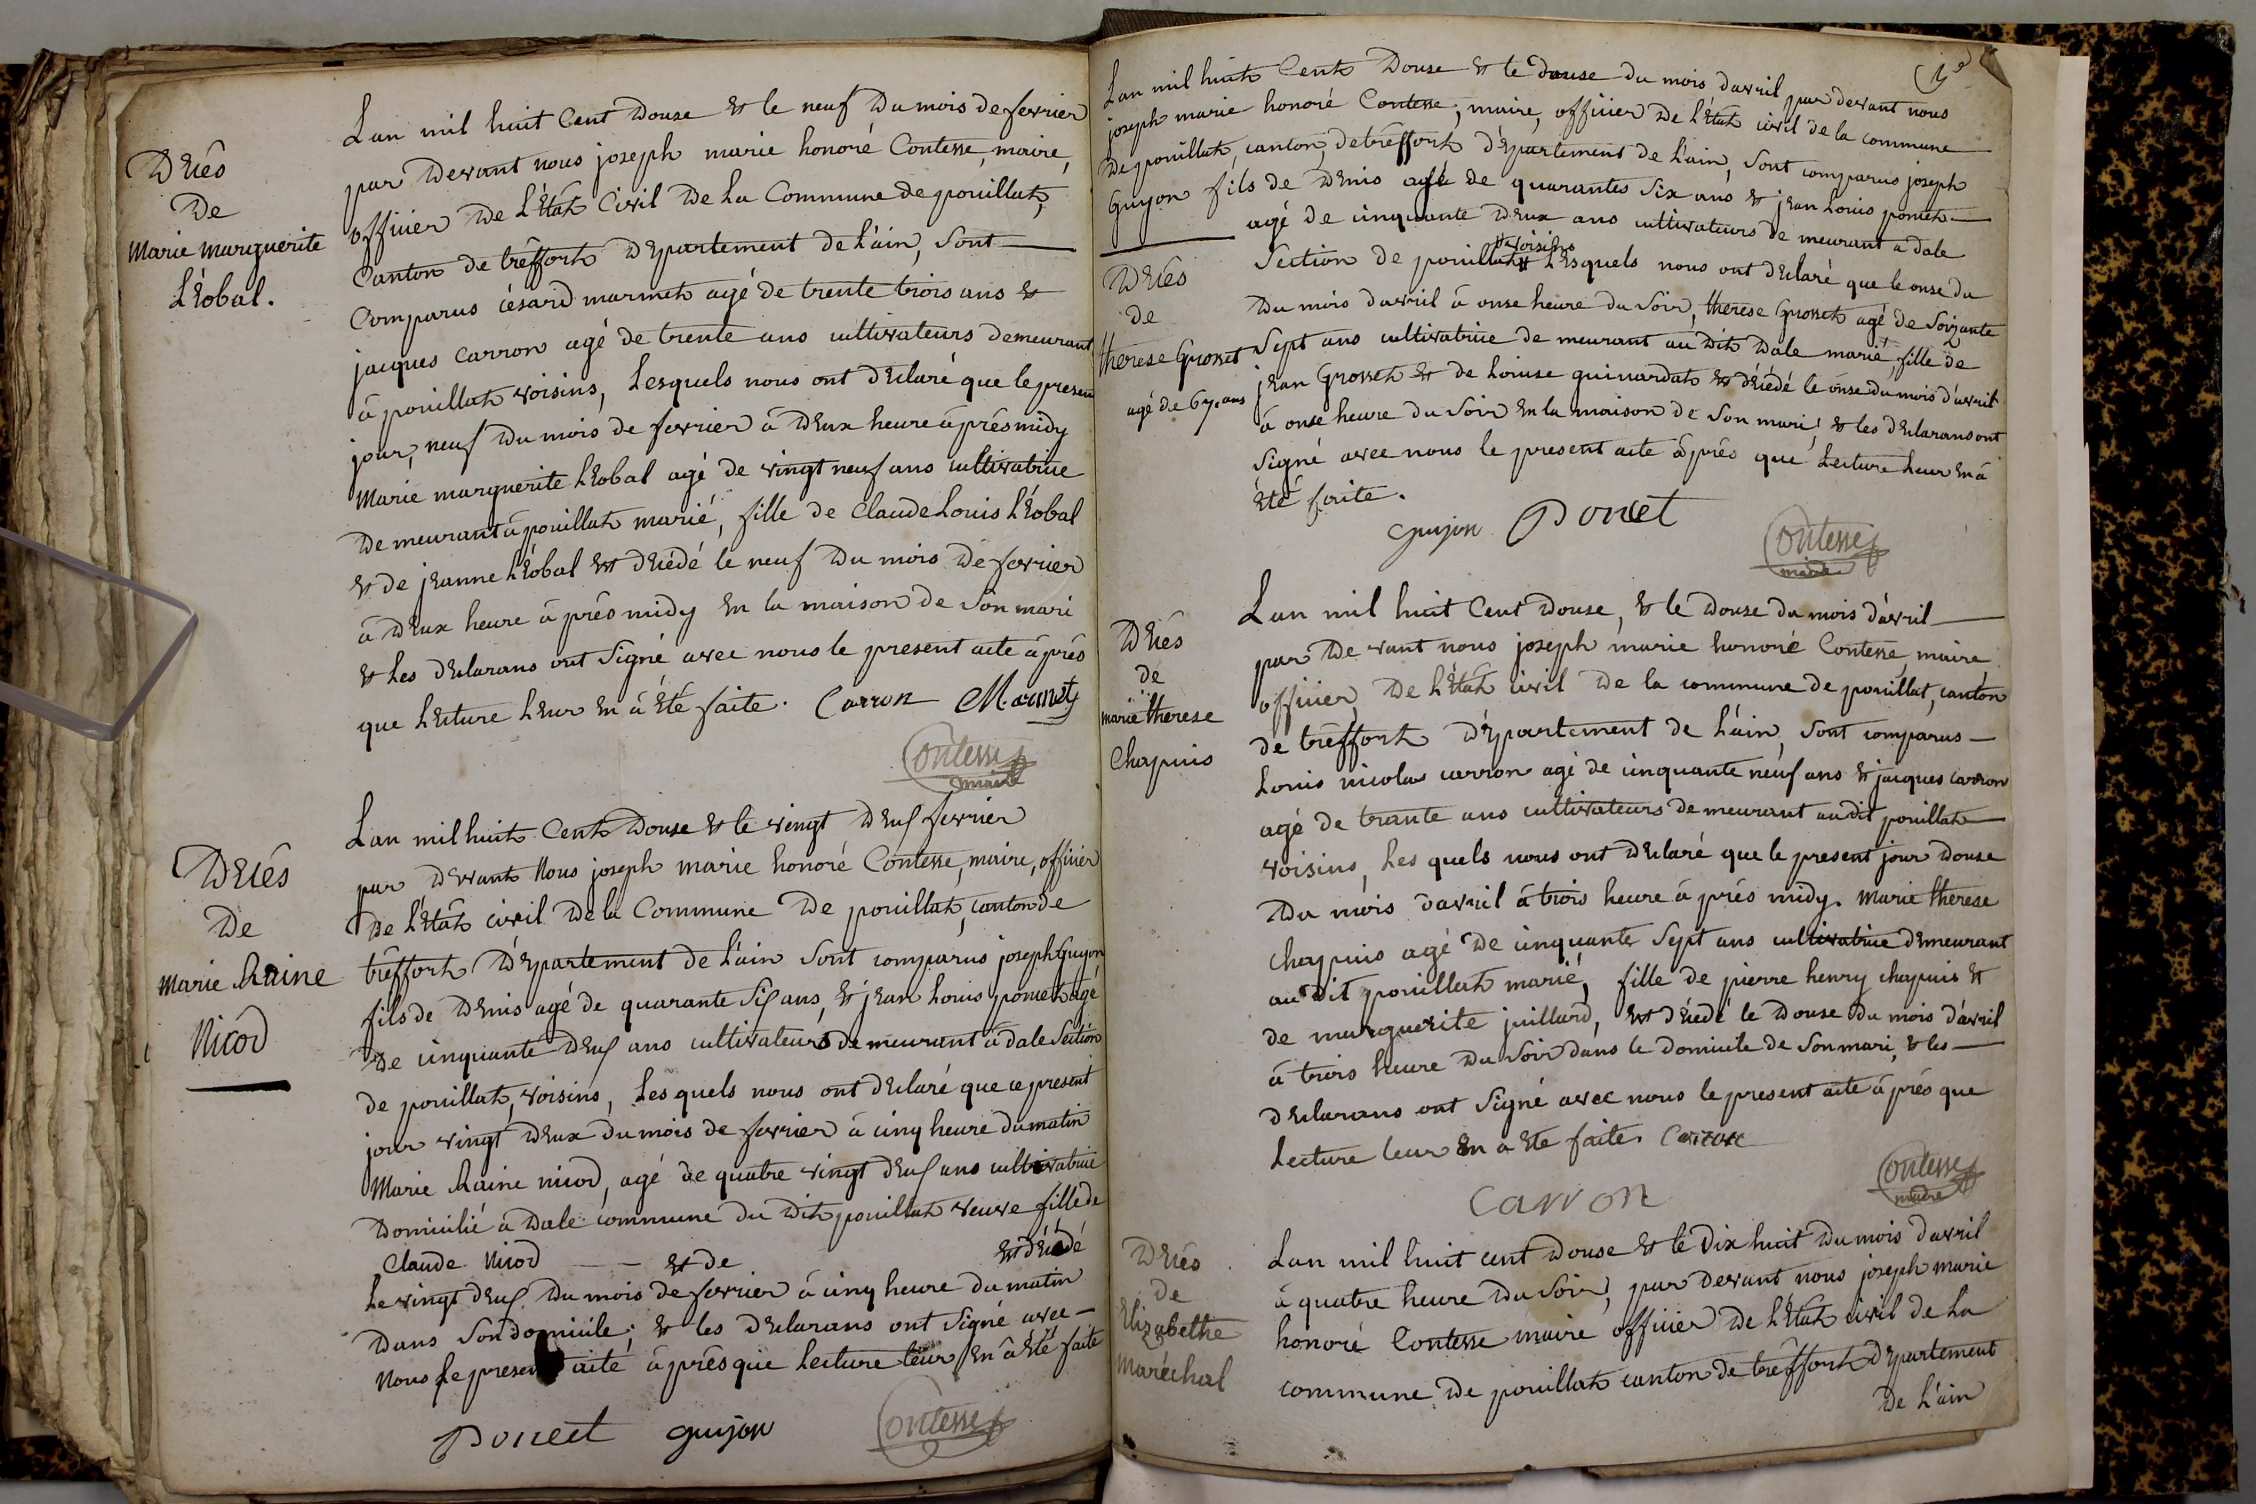 Décés
De
Marie Marguerite
Léobal.
Lan mil huit Cent Douse & le neuf Du mois de fevrier
par Devant nous joseph marie honoré Contesse, maire,
officier De l'Etát Civil De La Commune de pouillat,
Canton de trêffort Département de l'ain, Sont
Comparus césard marmet agé de trente trois ans &
jacques Carron agé de trente ans cultivateurs demeurant
á pouillat voisins, Lesquels nous ont Déclaré que le present
jour, neuf Du mois de fevrier á Deux heure áprés midy
Marie marguerite Léobal agé de vingt neuf ans cultivatrice
De meurant á pouillat marié, fille de Claude Louis Léobal
& de jeanne Léobal est Décédé le neuf Du mois De fevrier
á Deux heure á prés midy En la maison de Son mari
& Les Déclarans ont Signé avec nous le present acte áprés
que Lecture Leur En á Eté faite. Carron Marmet
Contesse
maire
Décés
De
Marie Raine
Nicod
Lan mil huit Cent Douse & le vingt Deux fevrier
par Devant Nous joseph marie honoré Contesse, maire, officier
De l'Etát civil De la Commune De pouillat, canton de
trêffort Département de l'ain Sont comparus joseph Guyon
fils de Denis agé de quarante Six ans, & jean Louis poncet agé
De cinquante Deux ans cultivateurs Demeurant á dale Section
de pouillat, voisins, Les quels nous ont Déclaré que ce present
jour vingt Deux du mois de fevrier á cinq heure du matin
Marie Raine nicod, agé de quatre vingt Deux ans cultivatrice
Domicilié á Dale commune du Dit pouillat veuve fille de
Claude Nicod — — & de est décédé
Le vingt Deux Du mois de fevrier á cinq heure du matin
Dans Son domicile; & les Déclarans ont Signé avec —
Nous le present acte áprés que Lecture leur En á Eté faite
Poncet guyon Contesse
Lan mil huit Cent Douse & le douse du mois davril par devant nous
joseph marie honoré Contesse, maire, officier De l'Etát civil de la commune
De pouillat, canton, de trêffort Département de l'ain, Sont comparus joseph
Guyon fils de Denis agé de quarantes Six ans & jean Louis poncet —
agé de cinquante Deux ans cultivateurs de meurant a dale
voisins
Section de pouillat Lesquels nous ont déclaré que le onse du
Décés
de
therese Grosset
agé de 67. ans
Du mois davril á onse heure du Soir, therese Grosset agé de Soixante
Sept ans cultivatrice de meurant au Dit Dale marié, fille de
jean Grosset & de Louise guinardat est décédé le onse du mois d'avril
á onse heure du Soir En la maison de Son mari; & les Déclarans ont
Signé avec nous le present acte áprés que Lecture Leur En á
Eté faite.
guyon Poncet
Contesse
maire
Décés
de
marie therese
Chapuis
Lan mil huit Cent Douse, & le Douse du mois davril —
par De vant nous joseph marie honoré Contesse, maire
officier, De l'Etát civil De la commune de pouillat, canton
de trêffort Département de L'ain, Sont comparus —
Louis nicolas carron agé de cinquante neuf ans & jacques carron
agé de trante ans cultivateurs de meurant au dit pouillat —
voisins, Les quels nous ont Déclaré que le present jour Douse
Du mois davril á trois heure á prés midy. Marie therese
Chapuis agé De cinquante Sept ans cultivatrice demeurant
au Dit pouillat marié, fille de pierre henry chapuis &
de marguerite juillard, est décédé le Douse Du mois d'avril
á trois heure Du Soir dans le domicile de Son mari, & les —
Déclarans ont Signé avec nous le present acte áprés que
Lecture leur En a Eté faite. Carron
Carron
Contesse
maire
Décés
de
Elizabethe
Maréchal
Lan mil huit cent Douse & le Dix huit Du mois davril
á quatre heure Du Soir, par Devant nous joseph marie
honoré Contesse maire officier De l'Etát civil de La
commune De pouillat canton de trêffort Département
De l'ain